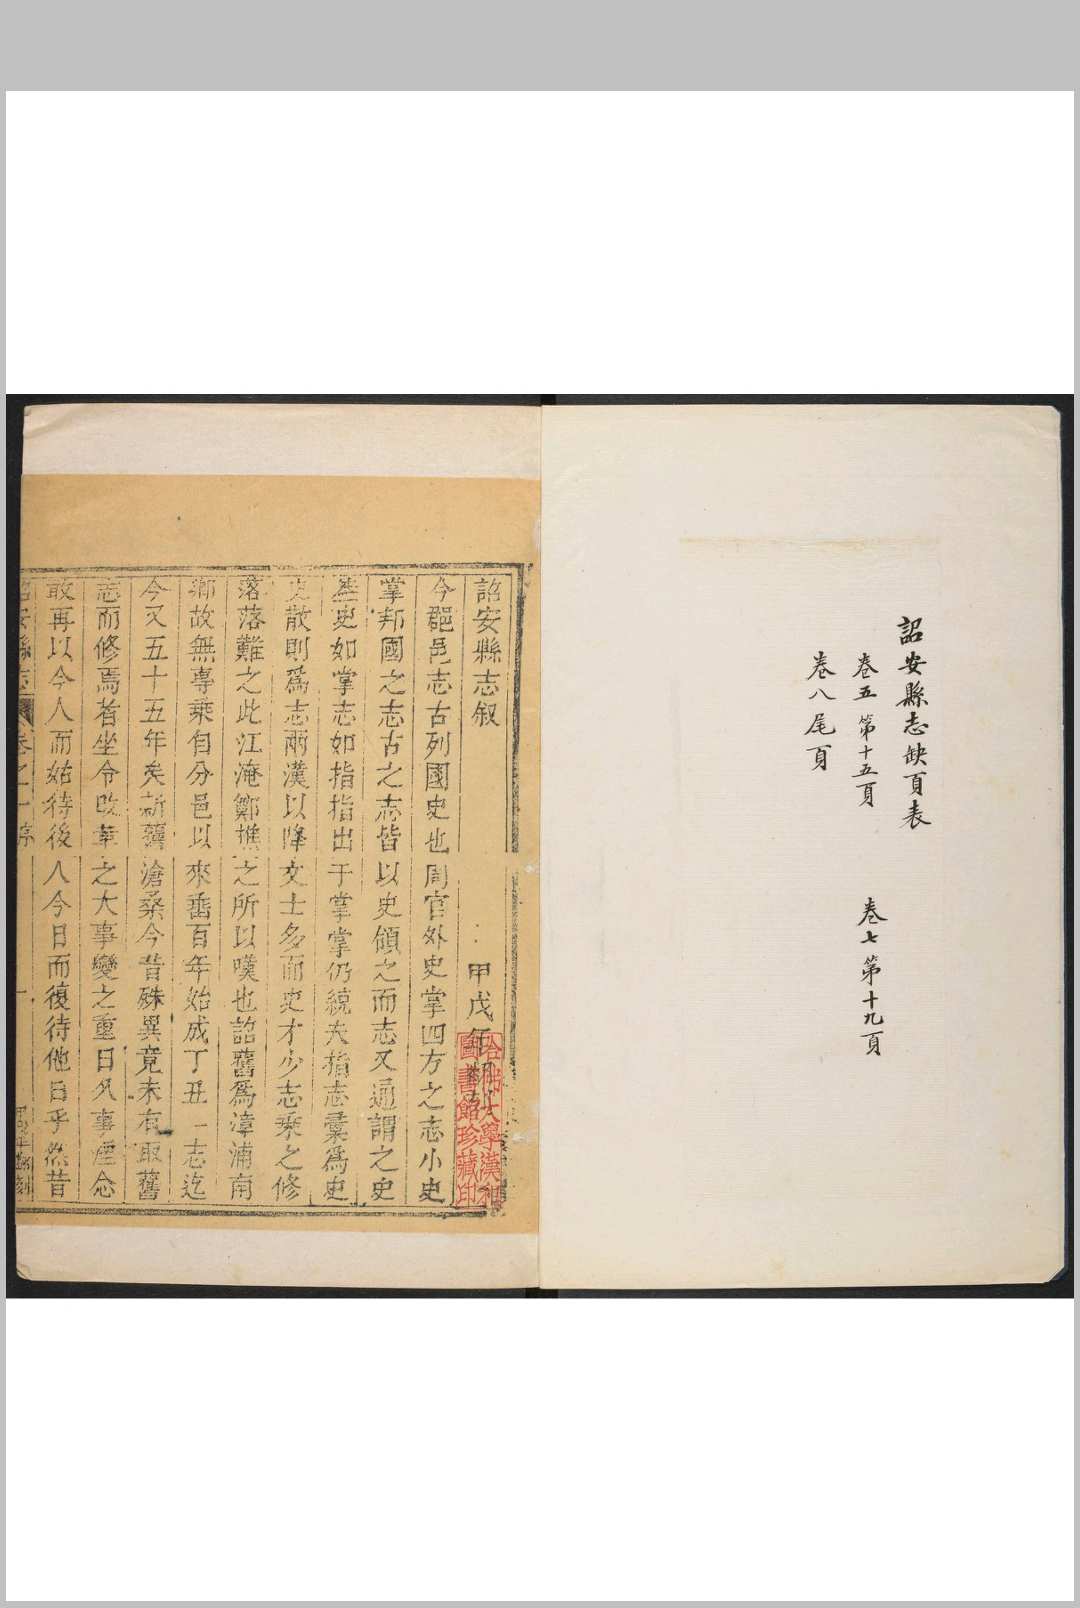 詔安縣志缺頁表
卷五 第十五頁
卷七 第十九頁
卷八尾頁
詔安縣志叙
甲戌年
哈佛大學漢和
圖書館珍藏印
今郡邑志古列國史也周官外史掌四方之志小史
掌邦國之志古之志皆以史領之而志又通謂之史
葢史如掌志如指指出于掌掌仍統夫指志彙爲史
史散則爲志兩漢以降文士多而史才少志乘之修
落落難之此江淹鄭樵之所以嘆也詔舊爲漳浦南
鄉故無專乘自分邑以來垂百年始成丁丑一志迄
今又五十五年矣新舊滄桑今昔殊異竟未有取舊
志而修焉者坐令改革之大事變之重日久事湮念
敢再以今人而姑待後人今日而復待他日乎然昔
詔安縣志 卷之一 序 一